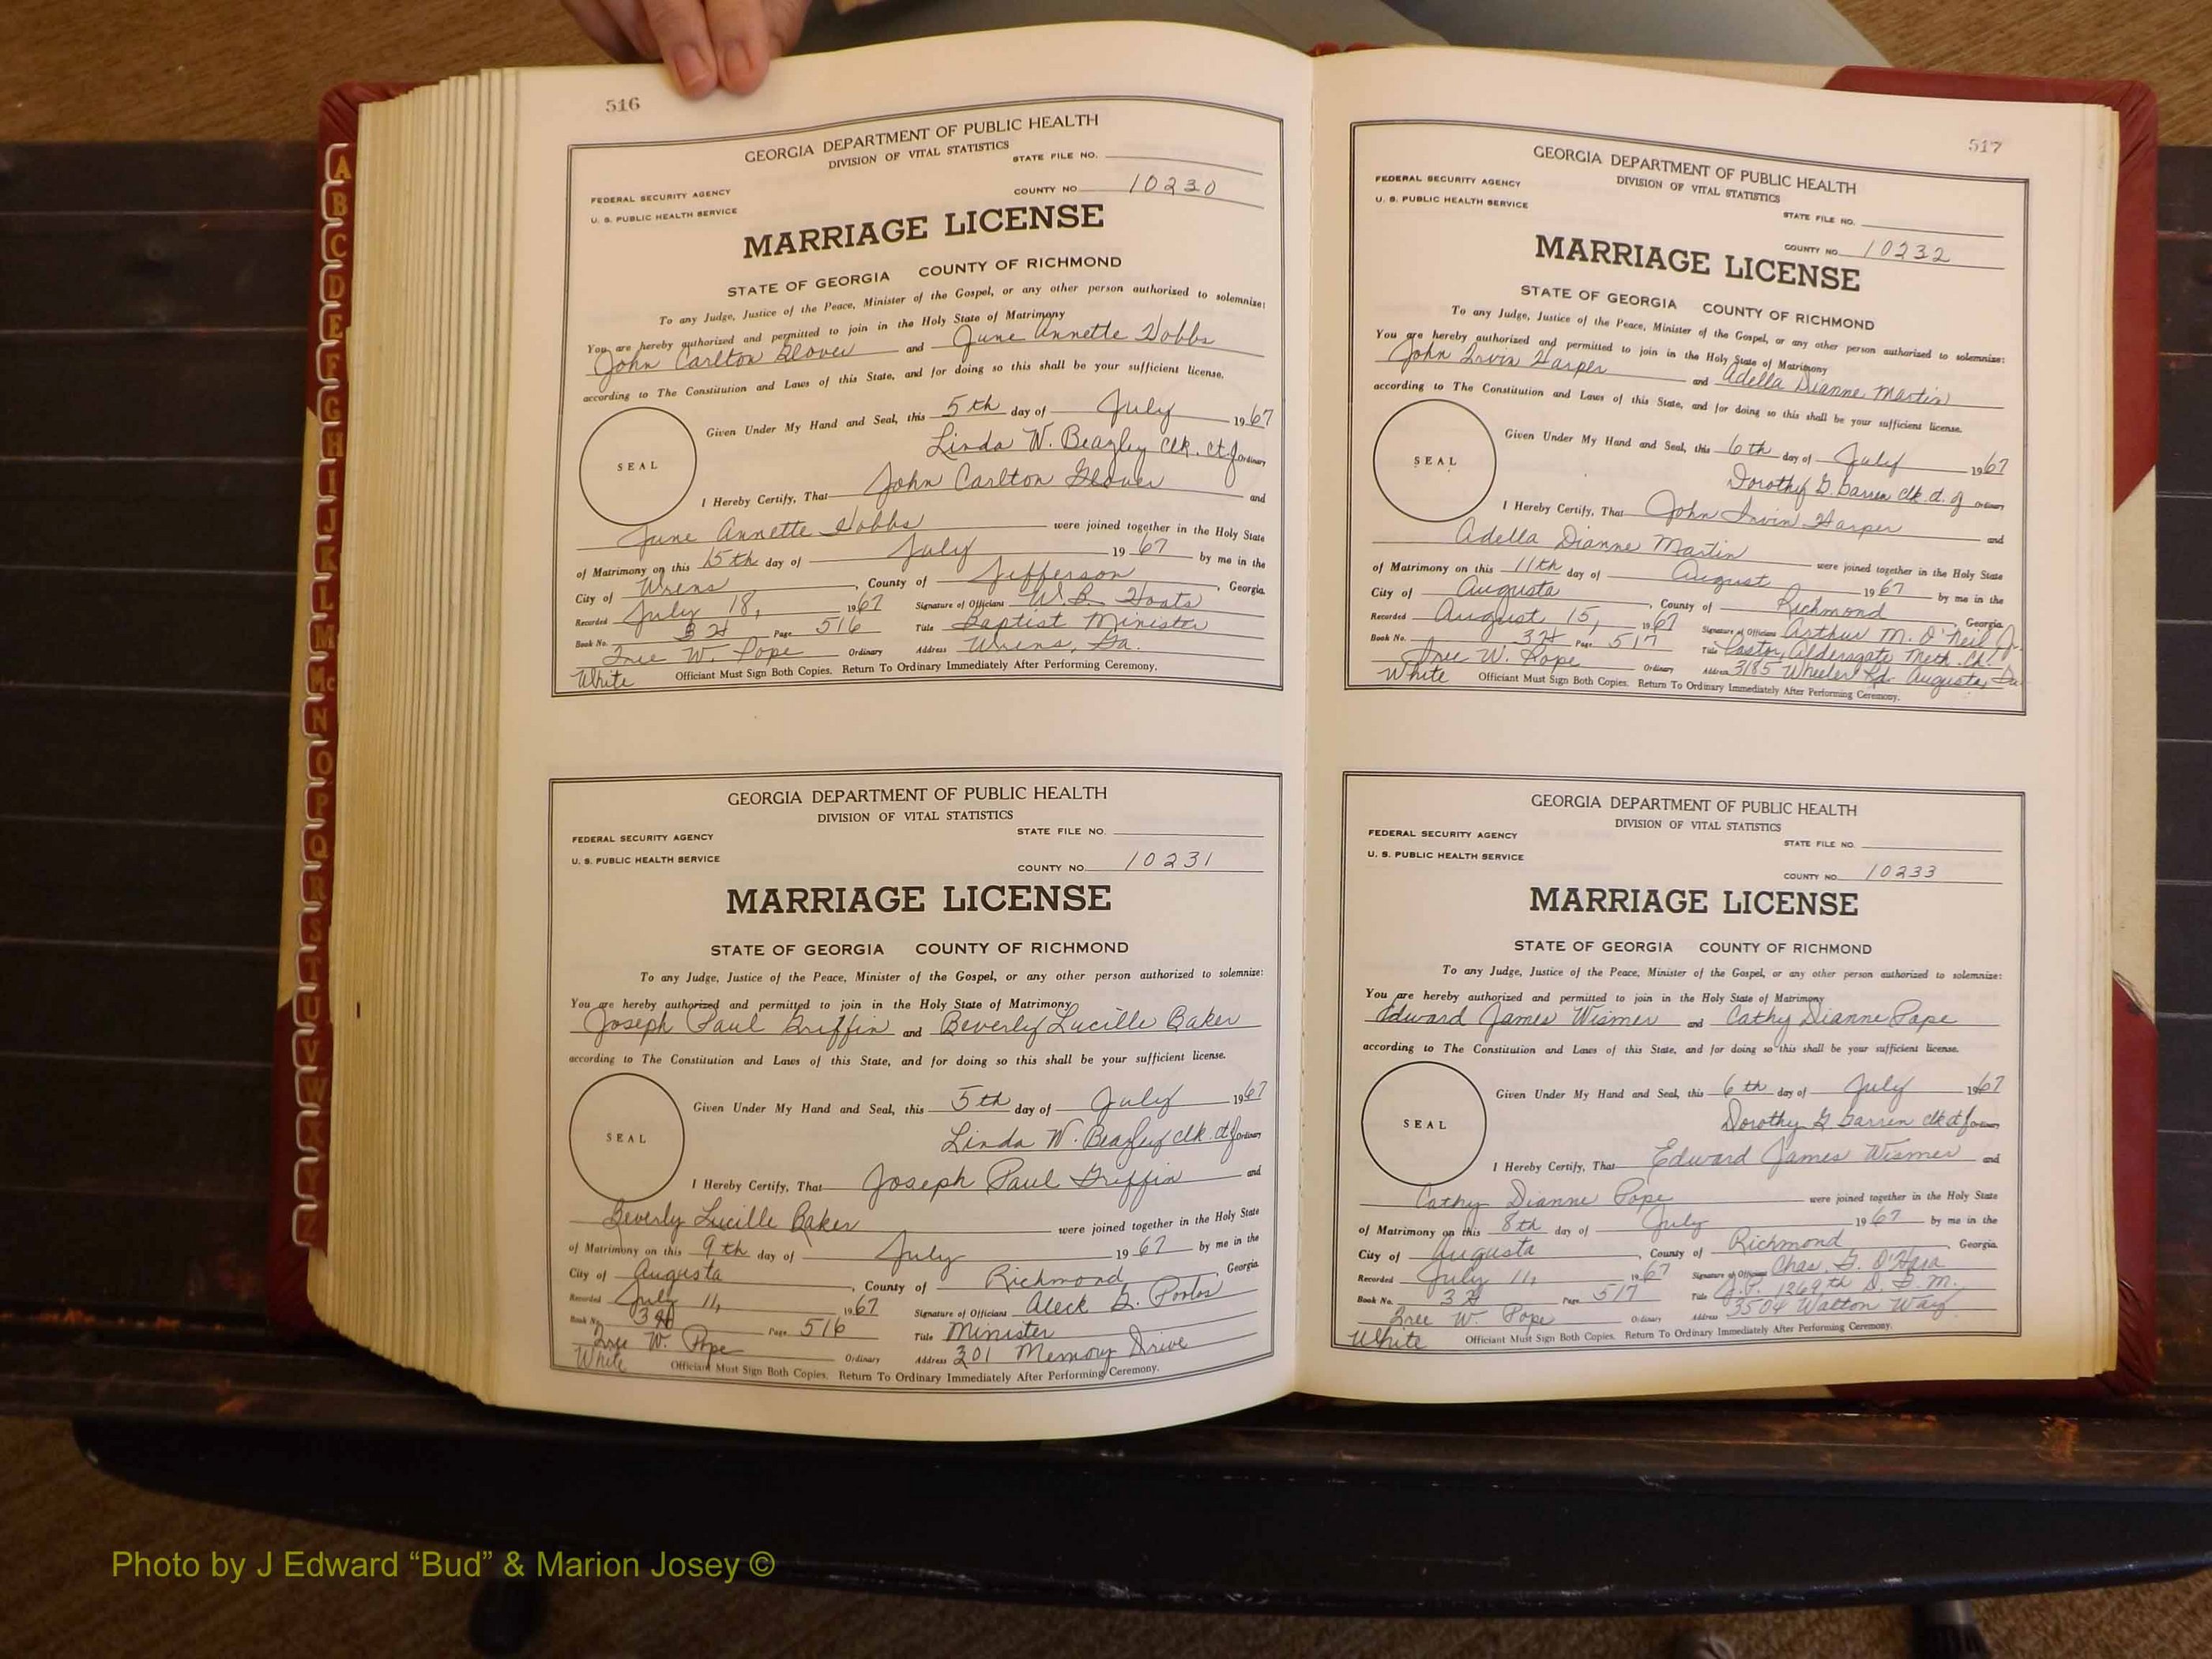 516
GEORGIA DEPARTMENT OF PUBLIC HEALTH
DIVISION OF VITAL STATISTICS
STATE FILE NO.
FEDERAL SECURITY AGENCY
COUNTY NO. 10230
U. S. PUBLIC HEALTH SERVICE
MARRIAGE LICENSE
STATE OF GEORGIA COUNTY OF RICHMOND
To any Judge, Justice of the Peace, Minister of the Gospel, or any other person authorized to solemnize:
You are hereby authorized and permitted to join in the Holy State of Matrimony
John Carlton Glover and June Annette Hobbs
according to The Constitution and Laws of this State, and for doing so this shall be your sufficient license.
Given Under My Hand and Seal, this 5th day of July 1967
SEAL
Linda W. Beazley Clk. Ct. of Ordinary
I Hereby Certify, That John Carlton Glover and
June Annette Hobbs were joined together in the Holy State
of Matrimony on this 15th day of July 1967 by me in the
City of Wrens, County of Jefferson, Georgia
Recorded July 18, 1967 Signature of Officiant W. B. Hoats
Book No. 3H Page 516 Title Baptist Minister
W. Pope Ordinary Address Wrens, Ga.
White Officiant Must Sign Both Copies. Return To Ordinary Immediately After Performing Ceremony.
GEORGIA DEPARTMENT OF PUBLIC HEALTH
DIVISION OF VITAL STATISTICS
FEDERAL SECURITY AGENCY
STATE FILE NO.
U. S. PUBLIC HEALTH SERVICE
COUNTY NO. 10231
MARRIAGE LICENSE
STATE OF GEORGIA COUNTY OF RICHMOND
To any Judge, Justice of the Peace, Minister of the Gospel, or any other person authorized to solemnize:
You are hereby authorized and permitted to join in the Holy State of Matrimony
Joseph Paul Griffin and Beverly Lucille Baker
according to The Constitution and Laws of this State, and for doing so this shall be your sufficient license.
Given Under My Hand and Seal, this 5th day of July 1967
SEAL
Linda W. Beazley Clk. Ct. of Ordinary
I Hereby Certify, That Joseph Paul Griffin and
Beverly Lucille Baker were joined together in the Holy State
of Matrimony on this 9th day of July 1967 by me in the
City of Augusta, County of Richmond, Georgia
Recorded July 11, 1967 Signature of Officiant Aleck G.
Book No. 3H Page 516 Title Minister
W. Pope Ordinary Address 301 Memory Drive
White Officiant Must Sign Both Copies. Return To Ordinary Immediately After Performing Ceremony.
517
GEORGIA DEPARTMENT OF PUBLIC HEALTH
DIVISION OF VITAL STATISTICS
FEDERAL SECURITY AGENCY
U. S. PUBLIC HEALTH SERVICE
STATE FILE NO.
COUNTY NO. 10232
MARRIAGE LICENSE
STATE OF GEORGIA COUNTY OF RICHMOND
To any Judge, Justice of the Peace, Minister of the Gospel, or any other person authorized to solemnize:
You are hereby authorized and permitted to join in the Holy State of Matrimony
John Irvin Harper and Adella Dianne Martin
according to The Constitution and Laws of this State, and for doing so this shall be your sufficient license.
Given Under My Hand and Seal, this 6th day of July 1967
SEAL
Dorothy G. Garren Clk. Ct. of Ordinary
I Hereby Certify, That John Irvin Harper and
Adella Dianne Martin were joined together in the Holy State
of Matrimony on this 11th day of August 1967 by me in the
City of Augusta, County of Richmond, Georgia
Recorded August 15, 1967 Signature of Officiant Arthur M. O'Neil, Jr.
Book No. 3H Page 517 Title Pastor, Aldersgate Meth. Ch.
W. Pope Ordinary Address 3185 Wheeler Rd. Augusta, Ga.
White Officiant Must Sign Both Copies. Return To Ordinary Immediately After Performing Ceremony.
GEORGIA DEPARTMENT OF PUBLIC HEALTH
DIVISION OF VITAL STATISTICS
FEDERAL SECURITY AGENCY
STATE FILE NO.
U. S. PUBLIC HEALTH SERVICE
COUNTY NO. 10233
MARRIAGE LICENSE
STATE OF GEORGIA COUNTY OF RICHMOND
To any Judge, Justice of the Peace, Minister of the Gospel, or any other person authorized to solemnize:
You are hereby authorized and permitted to join in the Holy State of Matrimony
Edward James Wismer and Cathy Dianne Pope
according to The Constitution and Laws of this State, and for doing so this shall be your sufficient license.
Given Under My Hand and Seal, this 6th day of July 1967
SEAL
Dorothy G Garren Clk Ct of Ordinary
I Hereby Certify, That Edward James Wismer and
Cathy Dianne Pope were joined together in the Holy State
of Matrimony on this 8th day of July 1967 by me in the
City of Augusta, County of Richmond, Georgia
Recorded July 11, 1967 Signature of Officiant Chas. G. O'Hara
Book No. 3H Page 517 Title J.P. 1269th D. G. M.
W. Pope Ordinary Address 3504 Walton Way
White Officiant Must Sign Both Copies. Return To Ordinary Immediately After Performing Ceremony.
A
B
C
D
E
F
G
H
I
J
K
L
M
Mc
N
O
P
Q
R
S
T
U
V
W
X
Y
Z
Photo by J Edward “Bud” & Marion Josey ©